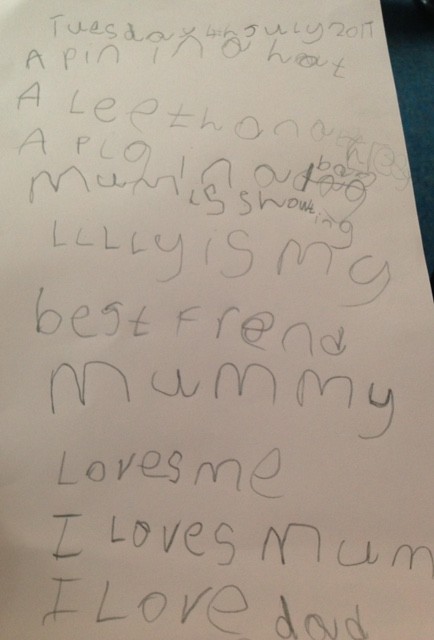 Tuesday 4th July 2017
A pin in a hat
A Leef on a
A pig in a bag
Mum is showting
LLLLy is my
best frend
Mummy
Loves me
I Loves Mum
I Love dad